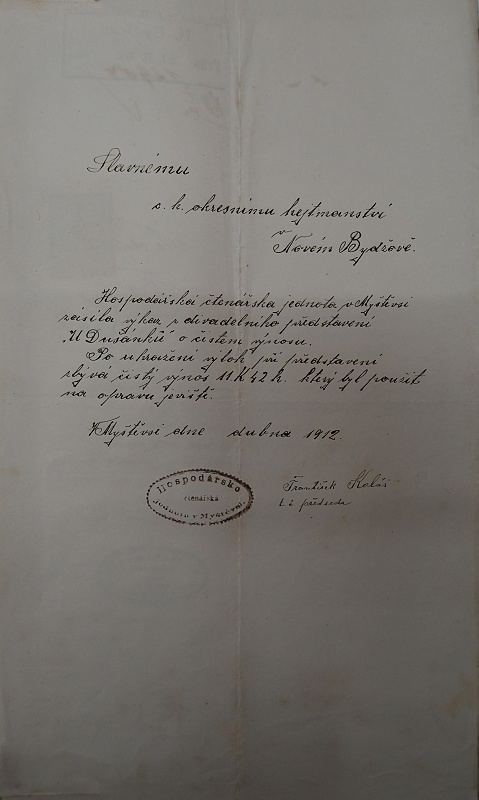 Slavnému
c. k. okresnímu hejtmanství
v Novém Bydžově.
Hospodářská čtenářska jednota v Myštěvsi
zásila výkaz z divadelního představení
"U Dušánků" o čistém výnosu.
Po uhražení výloh při představení
zbývá čistý výnos 11 K 42 h. který byl použit
na opravu jeviště.
V Myštěvsi dne dubna 1912.
Hospodářsko
čtenářská
jednota v Myštěvsi
František
t. č. předseda